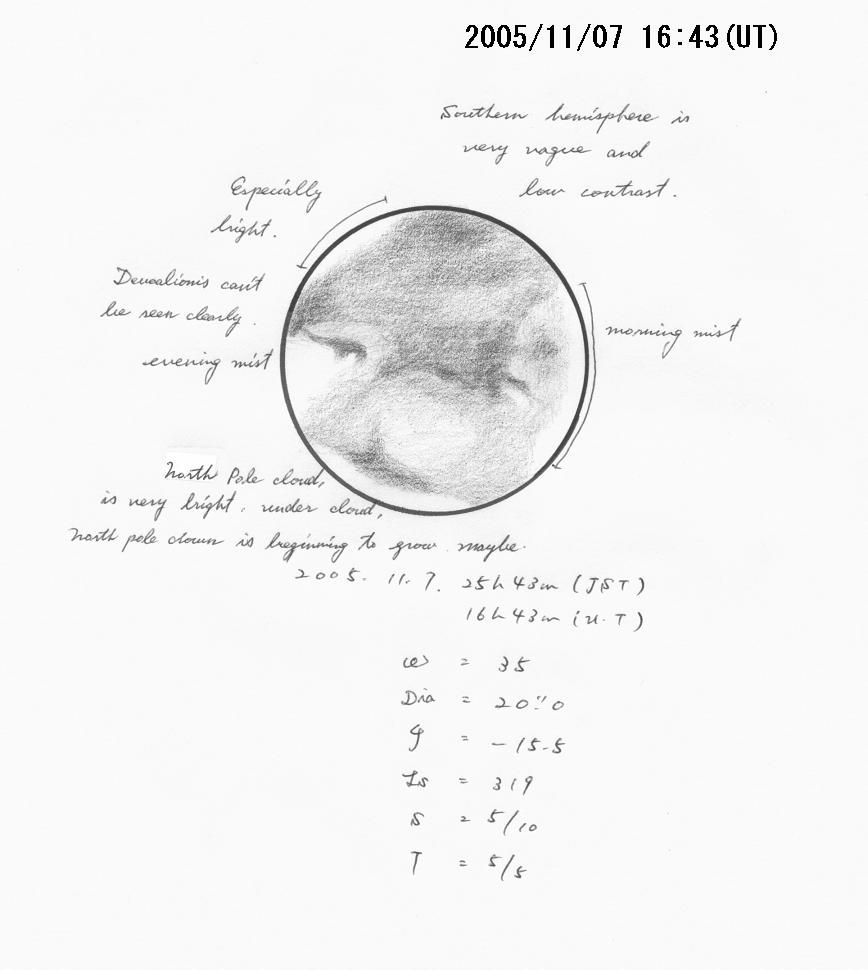 2005/11/07 16:43(UT)
Southern hemisphere is
very vague and
low contrast.
Especially
bright.
Deucalionis can't
be seen clearly.
evening mist
morning mist
North Pole cloud,
is very bright. under cloud,
north pole clown is beginning to grow. maybe.
2005. 11. 7. 25h 43m (JST)
16h 43m (U.T)
ω = 35
Dia = 20."0
φ = -15.5
Ls = 319
S = 5/10
T = 5/5